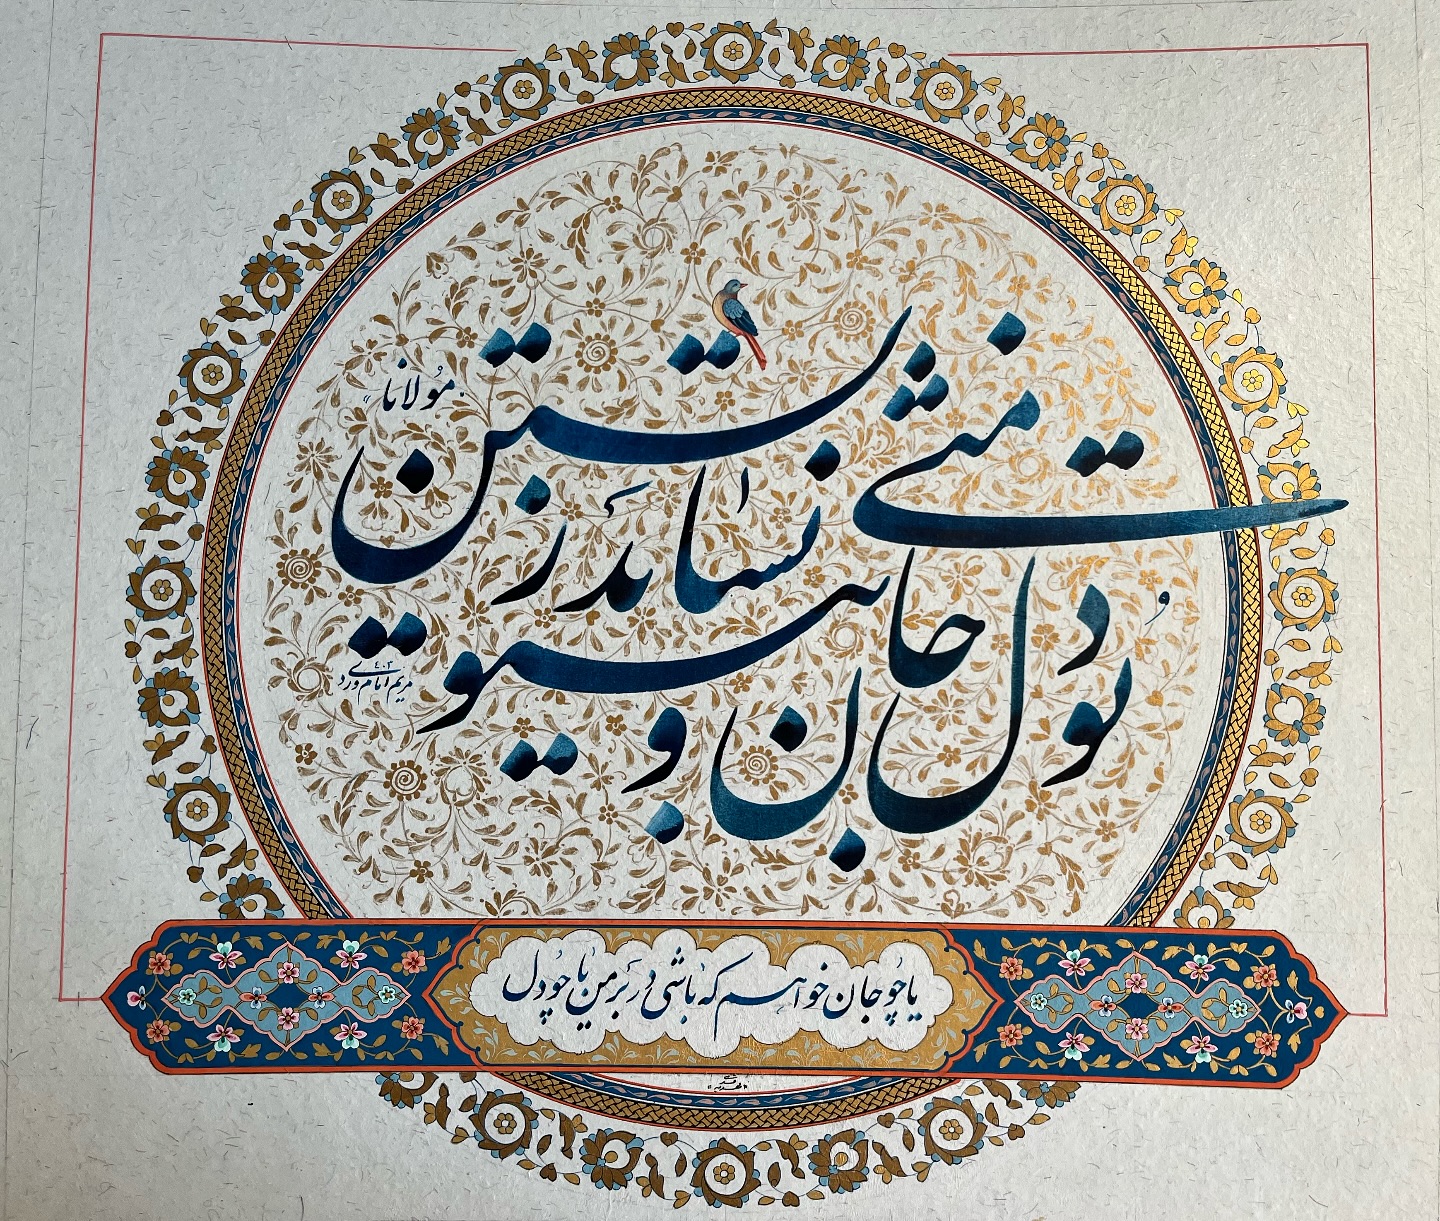 تو دل جان منی و بیتو نشاید زیستن
مولانا
۴۰۳
مریم امام وردی
یا چو جان خواهم که باشی در بر من یا چو دل